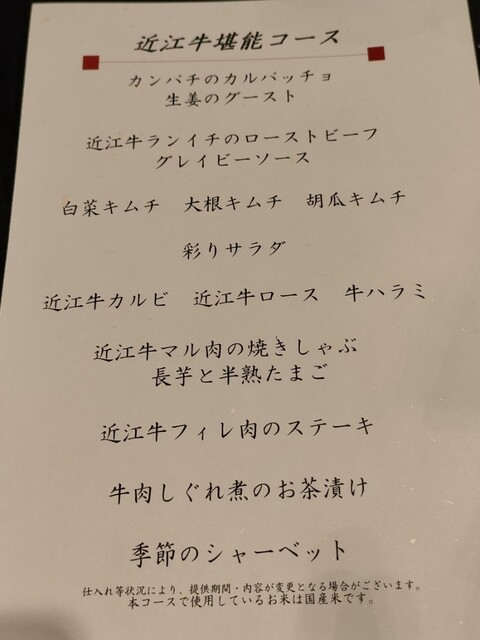 近江牛堪能コース
カンパチのカルパッチョ
生姜のグースト
近江牛ランイチのローストビーフ
グレイビーソース
白菜キムチ　大根キムチ　胡瓜キムチ
彩りサラダ
近江牛カルビ　近江牛ロース　牛ハラミ
近江牛マル肉の焼きしゃぶ
長芋と半熟たまご
近江牛フィレ肉のステーキ
牛肉しぐれ煮のお茶漬け
季節のシャーベット
仕入れ等状況により、提供期間・内容が変更となる場合がございます。
本コースで使用しているお米は国産米です。